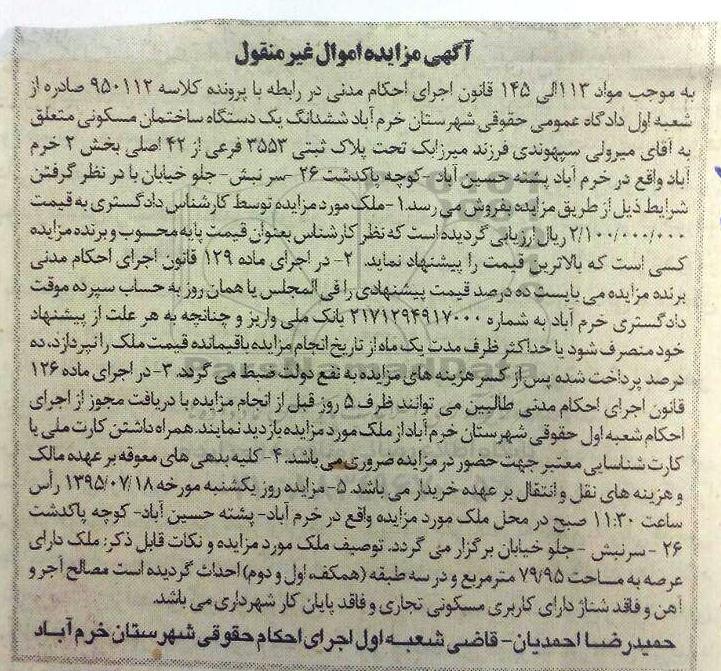 آگهی مزایده اموال غیر منقول
به موجب مواد ۱۱۳ الی ۱۴۵ قانون اجرای احکام مدنی در رابطه با پرونده کلاسه ۹۵۰۱۱۲ صادره از
شعبه اول دادگاه عمومی حقوقی شهرستان خرم آباد ششدانگ یک دستگاه ساختمان مسکونی متعلق
به آقای میرولی سپهوندی فرزند میرزابک تحت پلاک ثبتی ۳۵۵۳ فرعی از ۴۲ اصلی بخش ۲ خرم
آباد واقع در خرم آباد پشته حسین آباد- کوچه پاکدشت ۲۶ -سر نبش- جلو خیابان با در نظر گرفتن
شرایط ذیل از طریق مزایده بفروش می رسد.۱-ملک مورد مزایده توسط کارشناس دادگستری به قیمت
۲/۱۰۰/۰۰۰/۰۰۰ ریال ارزیابی گردیده است که نظر کارشناس بعنوان قیمت پایه محسوب و برنده مزایده
کسی است که بالاترین قیمت را پیشنهاد نماید. ۲- در اجرای ماده ۱۲۹ قانون اجرای احکام مدنی
برنده مزایده می بایست ده درصد قیمت پیشنهادی را فی المجلس یا همان روز به حساب سپرده موقت
دادگستری خرم آباد به شماره ۲۱۷۱۲۹۴۹۱۷۰۰۰ بانک ملی واریز و چنانچه به هر علت از پیشنهاد
خود منصرف شود یا حداکثر ظرف مدت یک ماه از تاریخ انجام مزایده باقیمانده قیمت ملک را نپردازد، ده
درصد پرداخت شده پس از کسر هزینه های مزایده به نفع دولت ضبط می گردد. ۳- در اجرای ماده ۱۲۶
قانون اجرای احکام مدنی طالبین می توانند ظرف ۵ روز قبل از انجام مزایده با دریافت مجوز از اجرای
احکام شعبه اول حقوقی شهرستان خرم آباد از ملک مورد مزایده بازدید نمایند. همراه داشتن کارت ملی یا
کارت شناسایی معتبر جهت حضور در مزایده ضروری می باشد. ۴- کلیه بدهی های معوقه بر عهده مالک
و هزینه های نقل و انتقال بر عهده خریدار می باشد. ۵- مزایده روز یکشنبه مورخه ۱۳۹۵/۰۷/۱۸ رأس
ساعت ۱۱:۳۰ صبح در محل ملک مورد مزایده واقع در خرم آباد- پشته حسین آباد- کوچه پاکدشت
۲۶ -سرنبش - جلو خیابان برگزار می گردد. توصیف ملک مورد مزایده و نکات قابل ذکر: ملک دارای
عرصه به مساحت ۷۹/۹۵ مترمربع و در سه طبقه (همکف، اول و دوم) احداث گردیده است مصالح آجر و
آهن و فاقد شناژ دارای کاربری مسکونی تجاری و فاقد پایان کار شهرداری می باشد.
حمیدرضا احمدیان- قاضی شعبه اول اجرای احکام حقوقی شهرستان خرم آباد